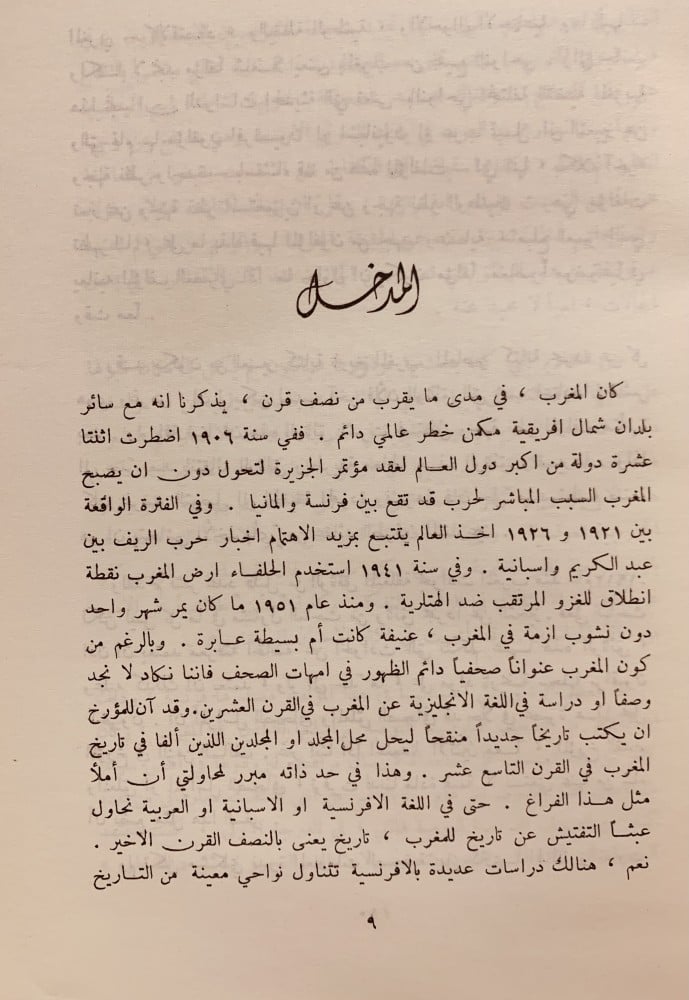 المدخل
كان المغرب ، في مدى ما يقرب من نصف قرن ، يذكرنا انه مع سائر
بلدان شمال افريقية مكمن خطر عالمي دائم . ففي سنة ١٩٠٦ اضطرت اثنتا
عشرة دولة من اكبر دول العـالم لعقد مؤتمر الجزيرة لتحول دون ان يصبح
المغرب السبب المباشر لحرب قد تقع بين فرنسة والمانيا . وفي الفترة الواقعة
بين ١٩٢١ و ١٩٢٦ اخـذ العالم يتتبع بمزيد الاهتمام اخبار حرب الريف بين
عبد الكريم واسبانية . وفي سنة ١٩٤١ استخدم الحلفـاء ارض المغرب نقطة
انطلاق للغزو المرتقب ضد الهتلرية . ومنذ عام ١٩٥١ ما كان يمر شهر واحد
دون نشوب ازمة في المغرب ، عنيفة كانت أم بسيطة عـابرة . وبالرغم من
كون المغرب عنواناً صحفياً دائم الظهور في امهات الصحف فاننا نكاد لا نجد
وصفاً او دراسة في اللغة الانجليزية عن المغرب في القرن العشرين. وقد آن للمؤرخ
ان يكتب تاريخاً جديداً منقحاً ليحل محل المجلد او المجلدين اللذين ألفا في تاريخ
المغرب في القرن التاسع عشر . وهذا في حد ذاته مبرر لمحاولتي أن أملأ
مثل هـذا الفراغ . حتى في اللغة الافرنسية او الاسبانية او العربية نحاول
عبثـاً التفتيش عن تاريخ للمغرب ، تاريخ يعنى بالنصف القرن الاخير .
نعم ، هنالك دراسات عديدة بالافرنسية تتناول نواحي معينة من التـاريخ
٩